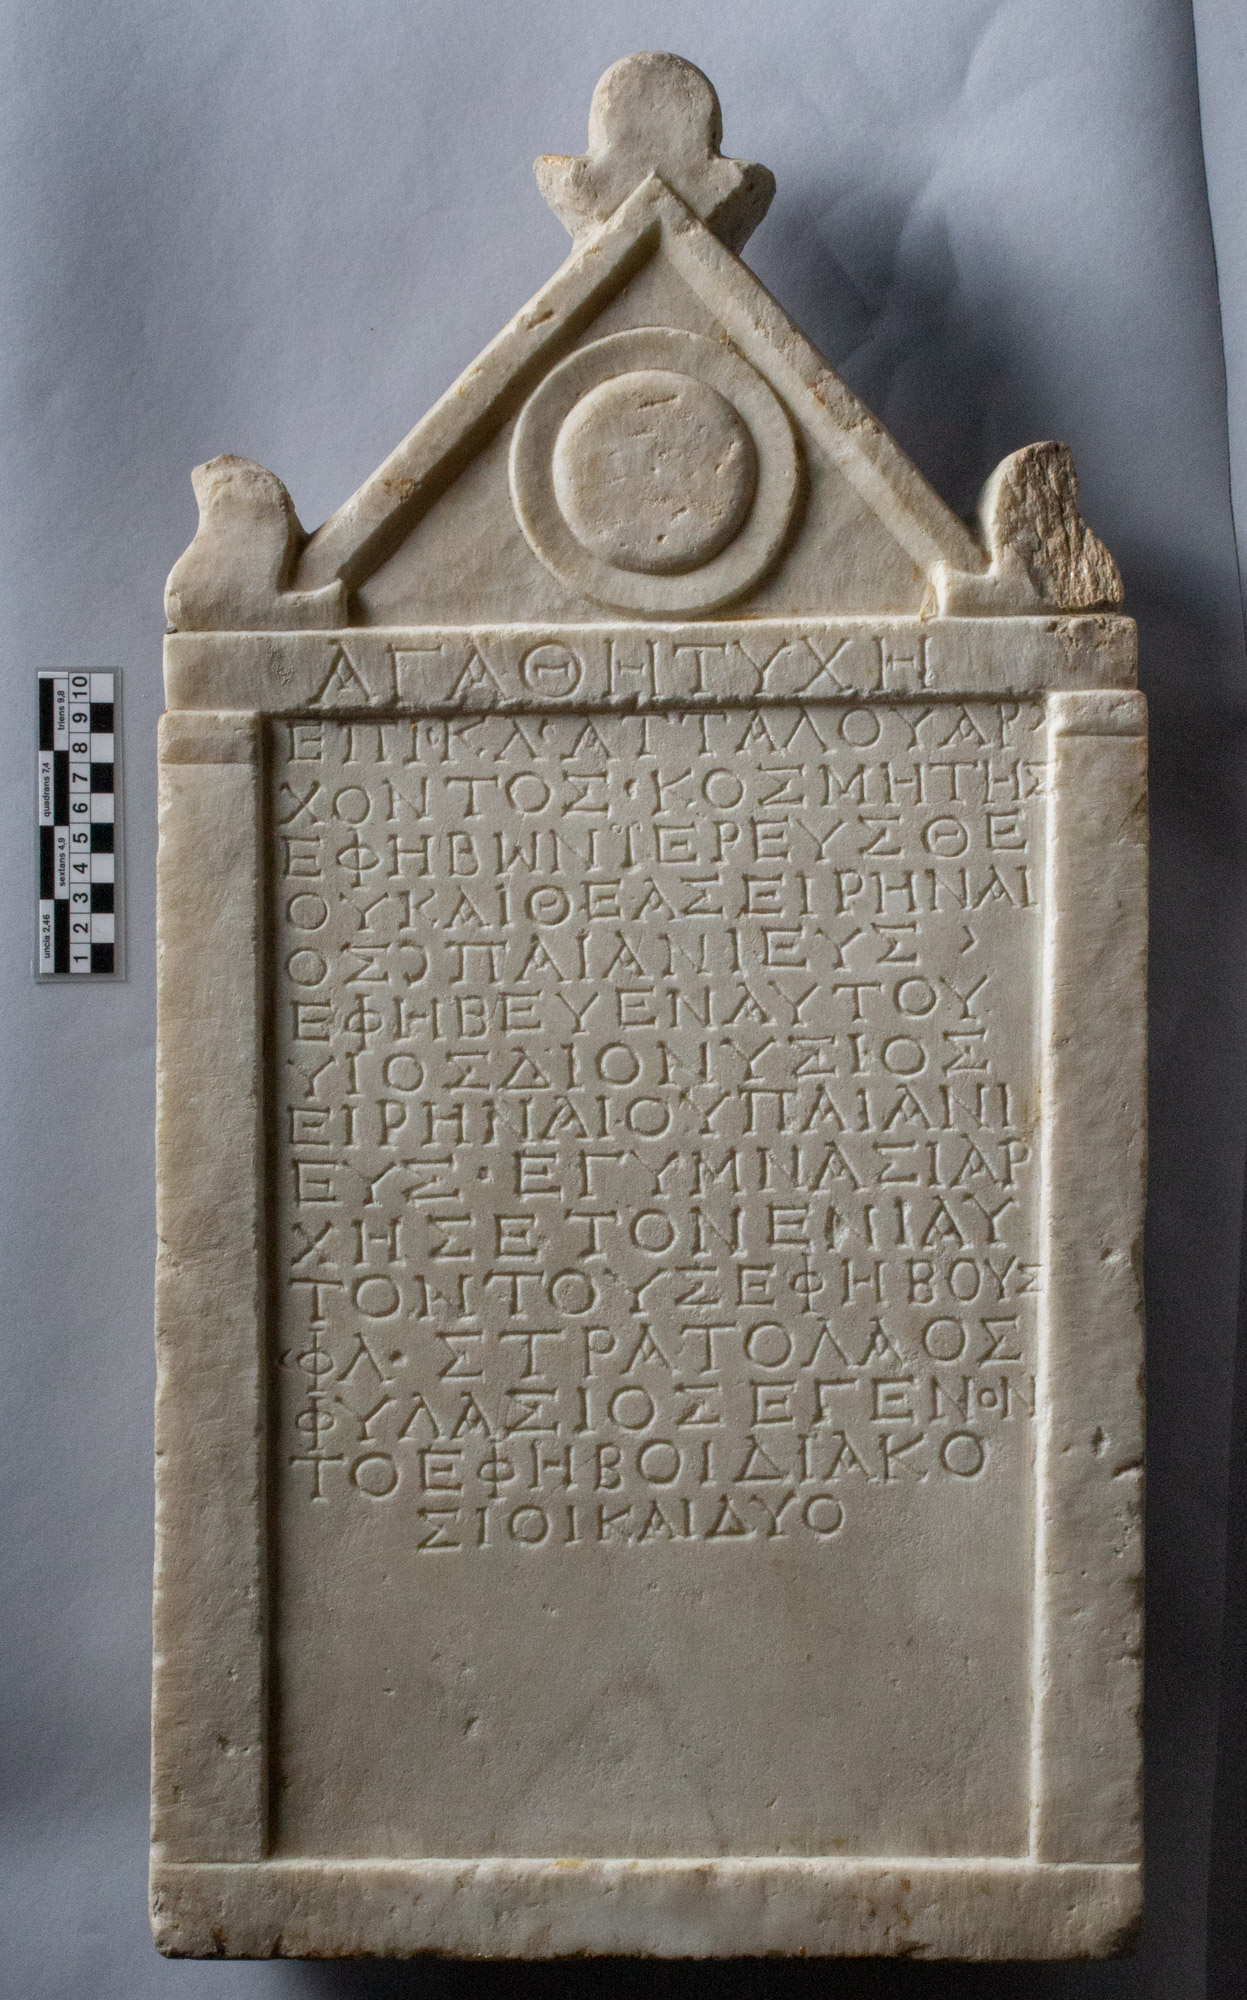 ΑΓΑΘΗΤΥΧΗ
ΕΠΙ·ΚΛ·ΑΤΤΑΛΟΥΑΡ
ΧΟΝΤΟΣ·ΚΟΣΜΗΤΗΣ
ΕΦΗΒΩΝΙΕΡΕΥΣΘΕ
ΟΥΚΑΙΘΕΑΣΕΙΡΗΝΑΙ
ΟΣϽΠΑΙΑΝΙΕΥΣ ›
ΕΦΗΒΕΥΕΝΑΥΤΟΥ
ΥΙΟΣΔΙΟΝΥΣΙΟΣ
ΕΙΡΗΝΑΙΟΥΠΑΙΑΝΙ
ΕΥΣ·ΕΓΥΜΝΑΣΙΑΡ
ΧΗΣΕΤΟΝΕΝΙΑΥ
ΤΟΝΤΟΥΣΕΦΗΒΟΥΣ
ΦΛ·ΣΤΡΑΤΟΛΑΟΣ
ΦΥΛΑΣΙΟΣΕΓΕΝΟΝ
ΤΟΕΦΗΒΟΙΔΙΑΚΟ
ΣΙΟΙΚΑΙΔΥΟ
uncia 2,46
sextans 4,9
quadrans 7,4
triens 9,8
1 2 3 4 5 6 7 8 9 10